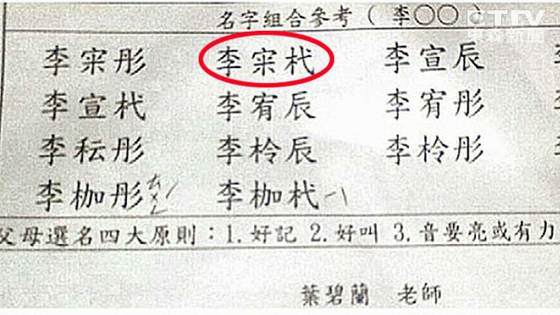 名字組合參考（李〇〇）
李宋彤 李宋杙 李宣辰
李宣杙 李宥辰 李宥彤
李耘彤 李柃辰 李柃彤
李枷彤 李枷杙
父母選名四大原則：1.好記 2.好叫 3.音要亮或有力
葉碧蘭 老師